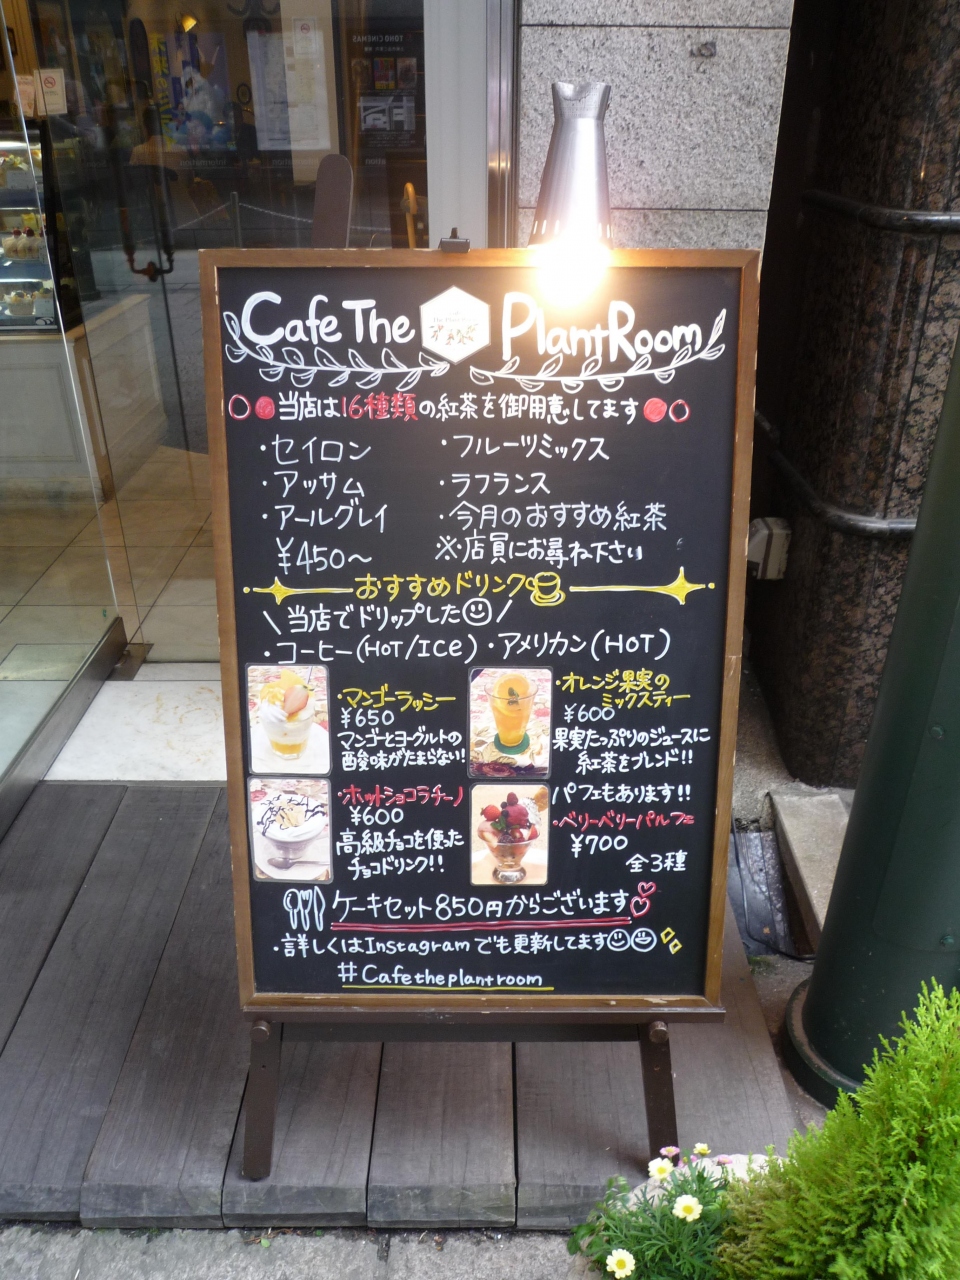 Cafe The Plant Room
当店は16種類の紅茶を御用意してます
・セイロン
・アッサム
・アールグレイ
¥450〜
・フルーツミックス
・ラフランス
・今月のおすすめ紅茶
※・店員にお尋ね下さい
おすすめドリンク
\当店でドリップした/
・コーヒー(HOT/ICE)・アメリカン(HOT)
・マンゴーラッシー
¥650
マンゴーとヨーグルトの
酸味がたまらない!
・オレンジ果実の
ミックスティー
¥600
果実たっぷりのジュースに
紅茶をブレンド!!
・ホットショコラチーノ
¥600
高級チョコを使った
チョコドリンク!!
パフェもあります!!
・ベリーベリーパルフェ
¥700
全3種
ケーキセット850円からございます
・詳しくはInstagramでも更新してます
#Cafetheplantroom